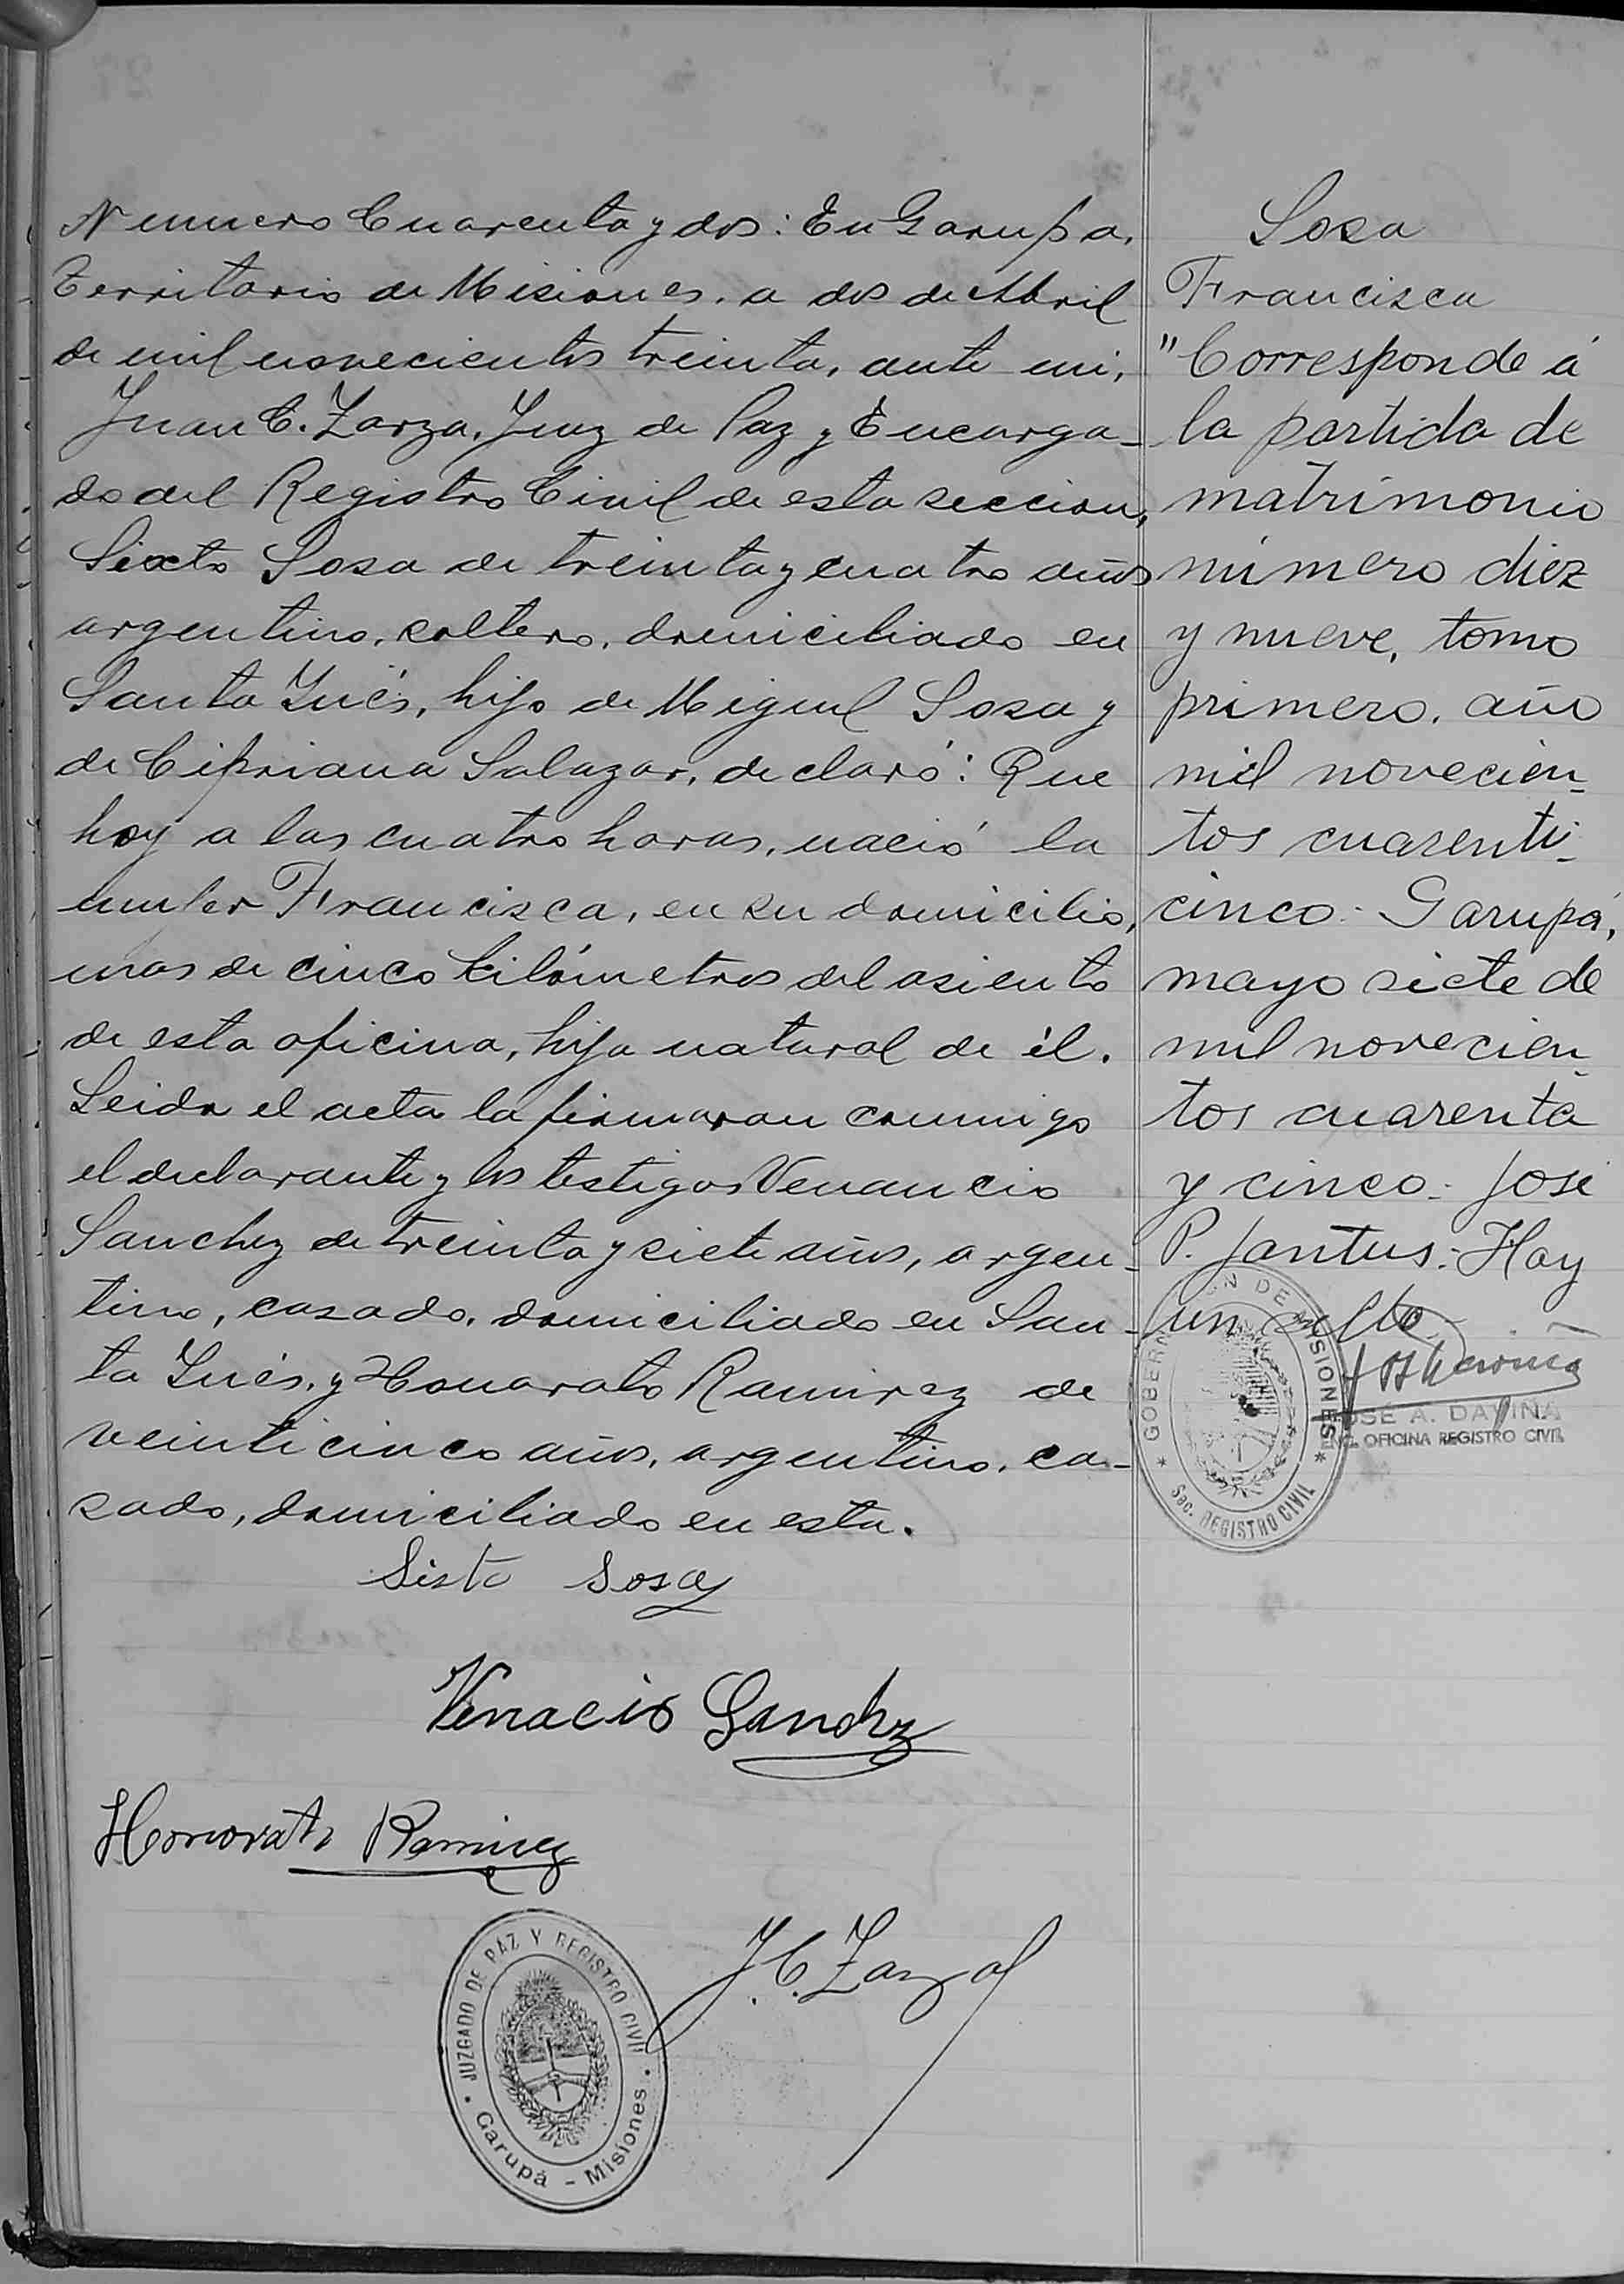 Numero Cuarenta y dos: En Garupa,
Territorio de Misiones, a dos de Abril
de mil novecientos treinta, ante mi,
Juan C. Zarza, Juez de Paz y Encarga-
do del Registro Civil de esta seccion,
Sixto Sosa de treinta y cuatro años
argentino, soltero, domiciliado en
Santa Inés, hijo de Miguel Sosa y
de Cipriana Salazar, declaró: Que
hoy a las cuatro horas, nació la
mujer Francisca, en su domicilio,
mas de cinco kilómetros del asiento
de esta oficina, hija natural de él.
Leida el acta la firmaron conmigo
el declarante y los testigos Venancio
Sanchez de treinta y siete años, argen-
tino, casado, domiciliado en San-
ta Inés, y Honorato Ramirez de
veinticinco años, argentino, ca-
sado, domiciliado en esta.
Sisto Sosa
Venacio Sanchz
Honorato Ramirez
J. C. Zarza
JUZGADO DE PAZ Y REGISTRO CIVIL
Garupá - Misiones
Sosa
Francisca
"Corresponde á
la partida de
matrimonio
número diez
y nueve, tomo
primero, año
mil novecien-
tos cuarenti-
cinco.- Garupá,
mayo siete de
mil novecien-
tos cuarenta
y cinco.- José
P. Jantus.- Hay
un sello
GOBERNACION DE MISIONES
Sec. REGISTRO CIVIL
JOSÉ A. DAVIÑA
ENC. OFICINA REGISTRO CIVIL